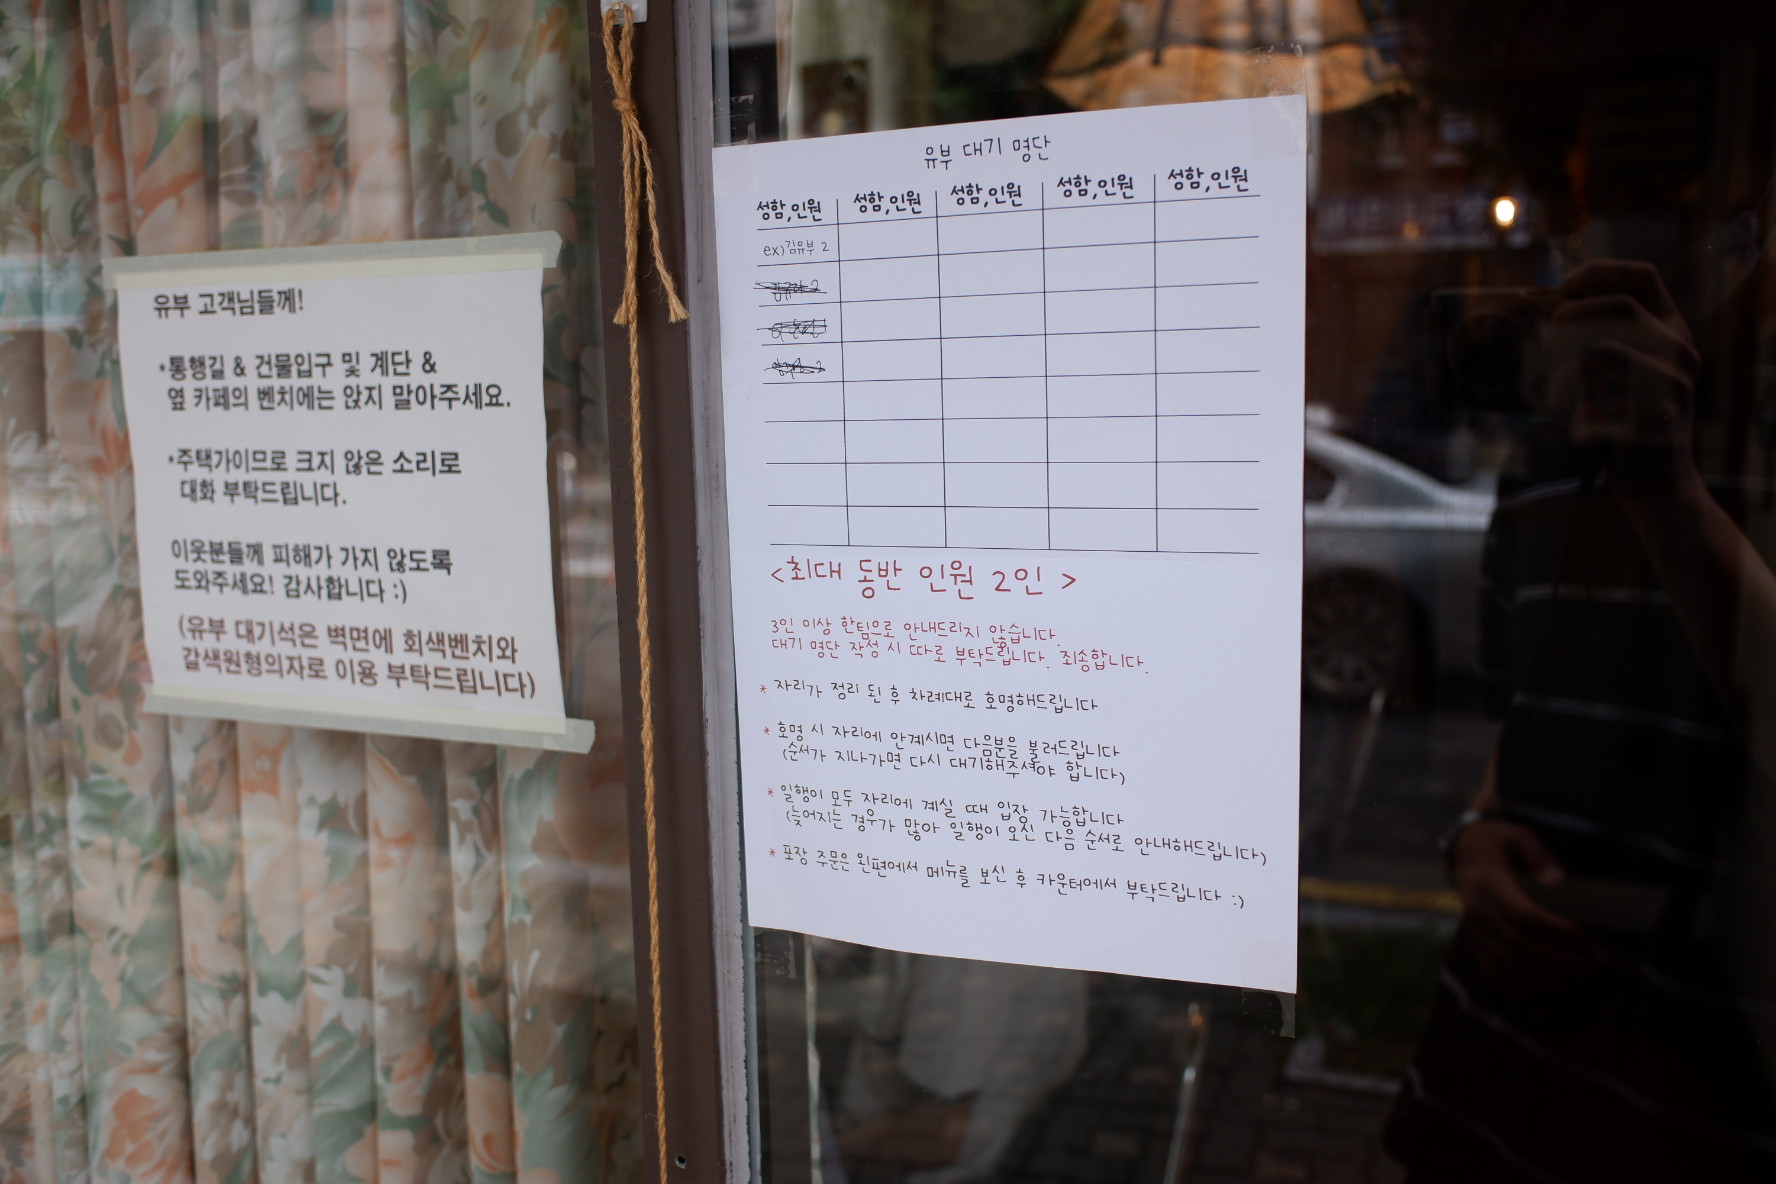 유부 고객님들께!
*통행길 & 건물입구 및 계단 &
옆 카페의 벤치에는 앉지 말아주세요.
*주택가이므로 크지 않은 소리로
대화 부탁드립니다.
이웃분들께 피해가 가지 않도록
도와주세요! 감사합니다 :)
(유부 대기석은 벽면에 회색벤치와
갈색원형의자로 이용 부탁드립니다)
유부 대기 명단
성함,인원 성함,인원 성함,인원 성함,인원 성함,인원
ex)김유부 2
2
2
<최대 동반 인원 2인 >
3인 이상 한팀으로 안내드리지 않습니다.
대기 명단 작성 시 따로 부탁드립니다. 죄송합니다.
* 자리가 정리 된 후 차례대로 호명해드립니다
* 호명 시 자리에 안계시면 다음분을 불러드립니다
(순서가 지나가면 다시 대기해주셔야 합니다)
* 일행이 모두 자리에 계실 때 입장 가능합니다
(늦어지는 경우가 많아 일행이 오신 다음 순서로 안내해드립니다)
* 포장 주문은 왼편에서 메뉴를 보신 후 카운터에서 부탁드립니다 :)